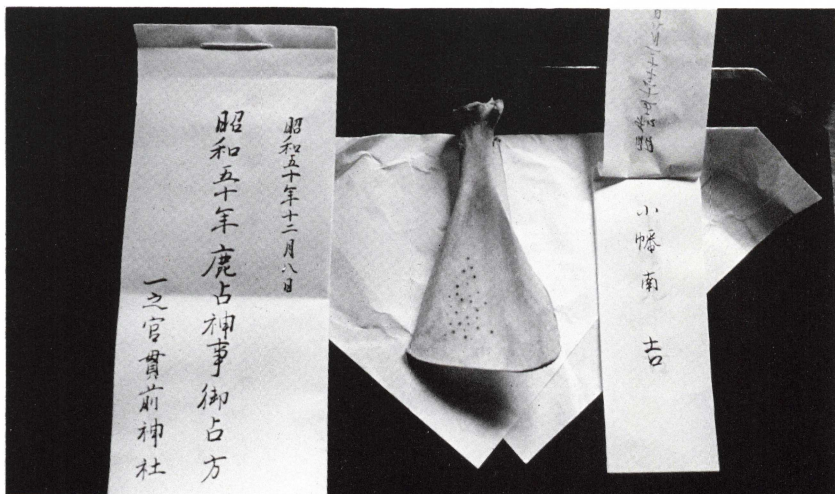 昭和五十年十二月八日
昭和五十年 鹿占神事御占方
一之宮貫前神社
小幡南 吉